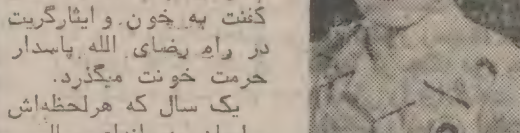 کفنت به خون و ایثارگریت
در راه رضای الله پاسدار
حرمت خونت میگذرد.
یک سال که هرلحظه‌اش